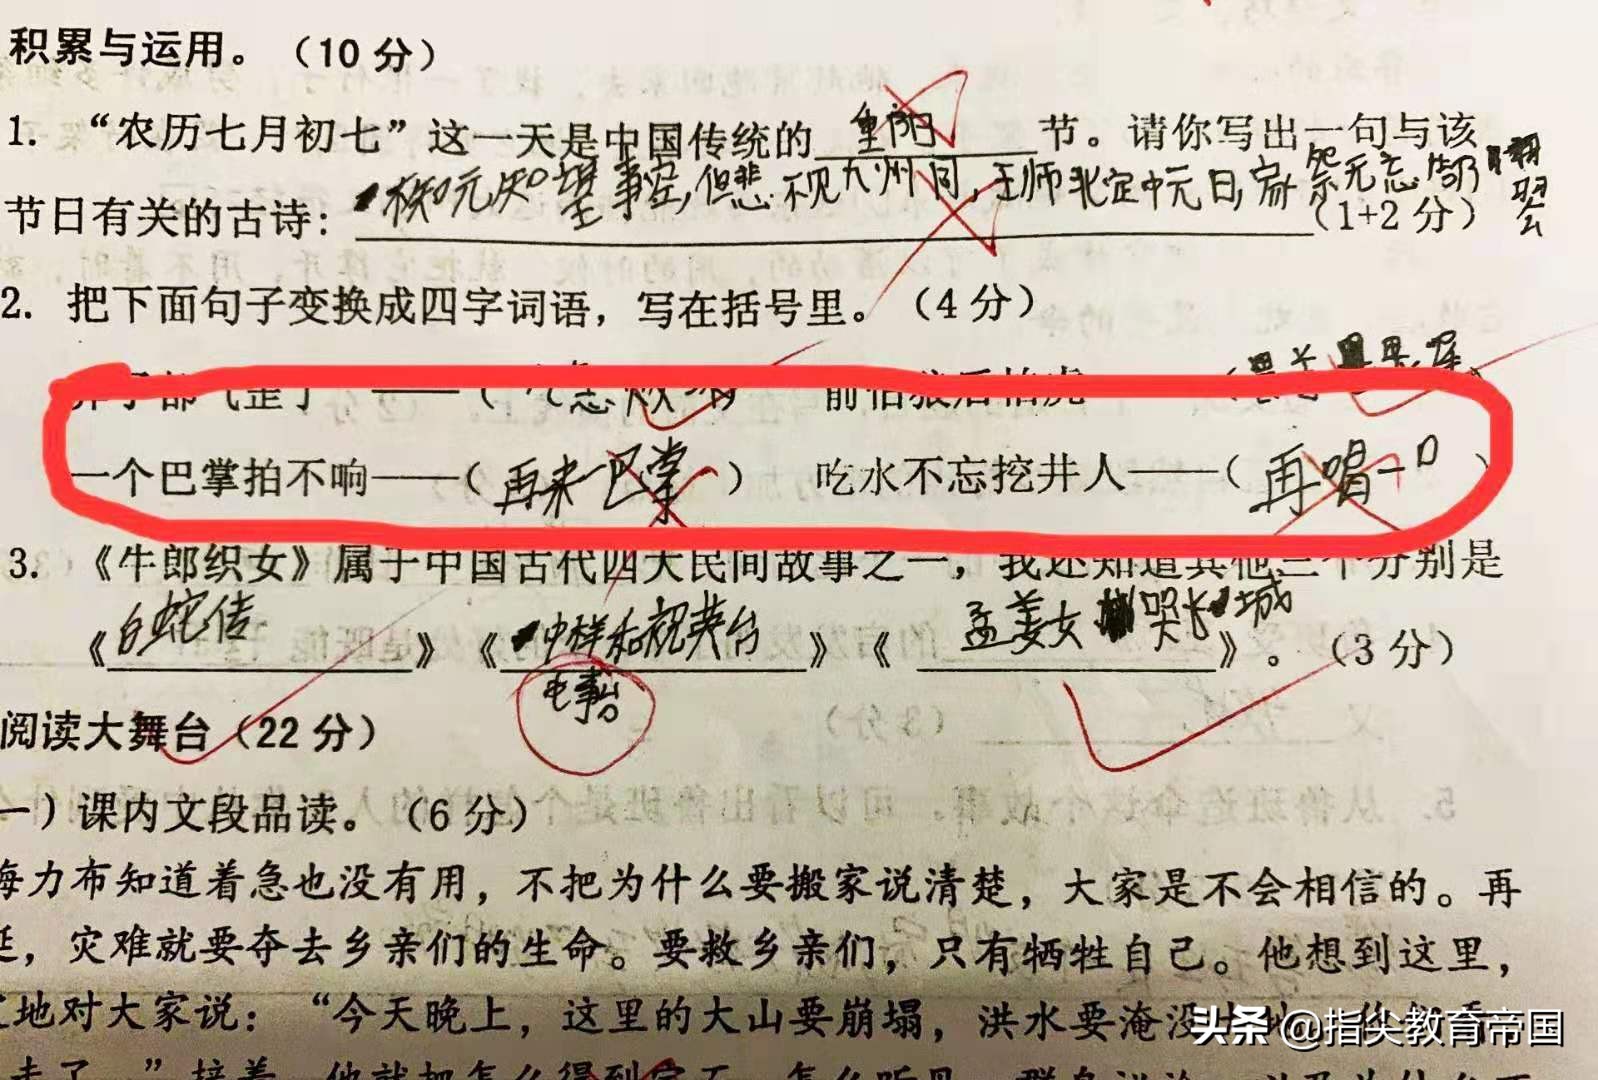 积累与运用。（10 分）
1. “农历七月初七”这一天是中国传统的 重阳 节。请你写出一句与该
节日有关的古诗： 元知 事空，但悲不见九州同，王师北定中元日，家祭无忘告乃翁 （1+2 分）
2. 把下面句子变换成四字词语，写在括号里。（4 分）
鼻子都气歪了——（气急败坏） 前怕狼后怕虎——（
一个巴掌拍不响——（再来一巴掌） 吃水不忘挖井人——（再喝一口）
3. 《牛郎织女》属于中国古代四大民间故事之一，我还知道其他三个分别是
《白蛇传》《 和祝英台》《孟姜女哭长城》。（3 分）
阅读大舞台（22 分）
一）课内文段品读。（6 分）
海力布知道着急也没有用，不把为什么要搬家说清楚，大家是不会相信的。再
延，灾难就要夺去乡亲们的生命。要救乡亲们，只有牺牲自己。他想到这里，
地对大家说：“今天晚上，这里的大山要崩塌，洪水要淹没大地。你们看，
走了。”接着，他就把怎么得到宝石，怎么听见
头条 @指尖教育帝国